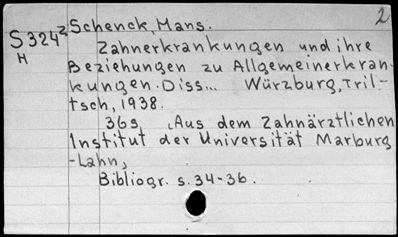 2
S324² Schenck, Mans.
H Zahnerkrankungen und ihre
Beziehungen zu Allgemeinerkran-
kungen. Diss... Würzburg, Tril-
tsch, 1938.
36s. Aus dem Zahnärztlichen
Institut der Universität Marburg
-Lahn,
Bibliogr. s. 34-36.